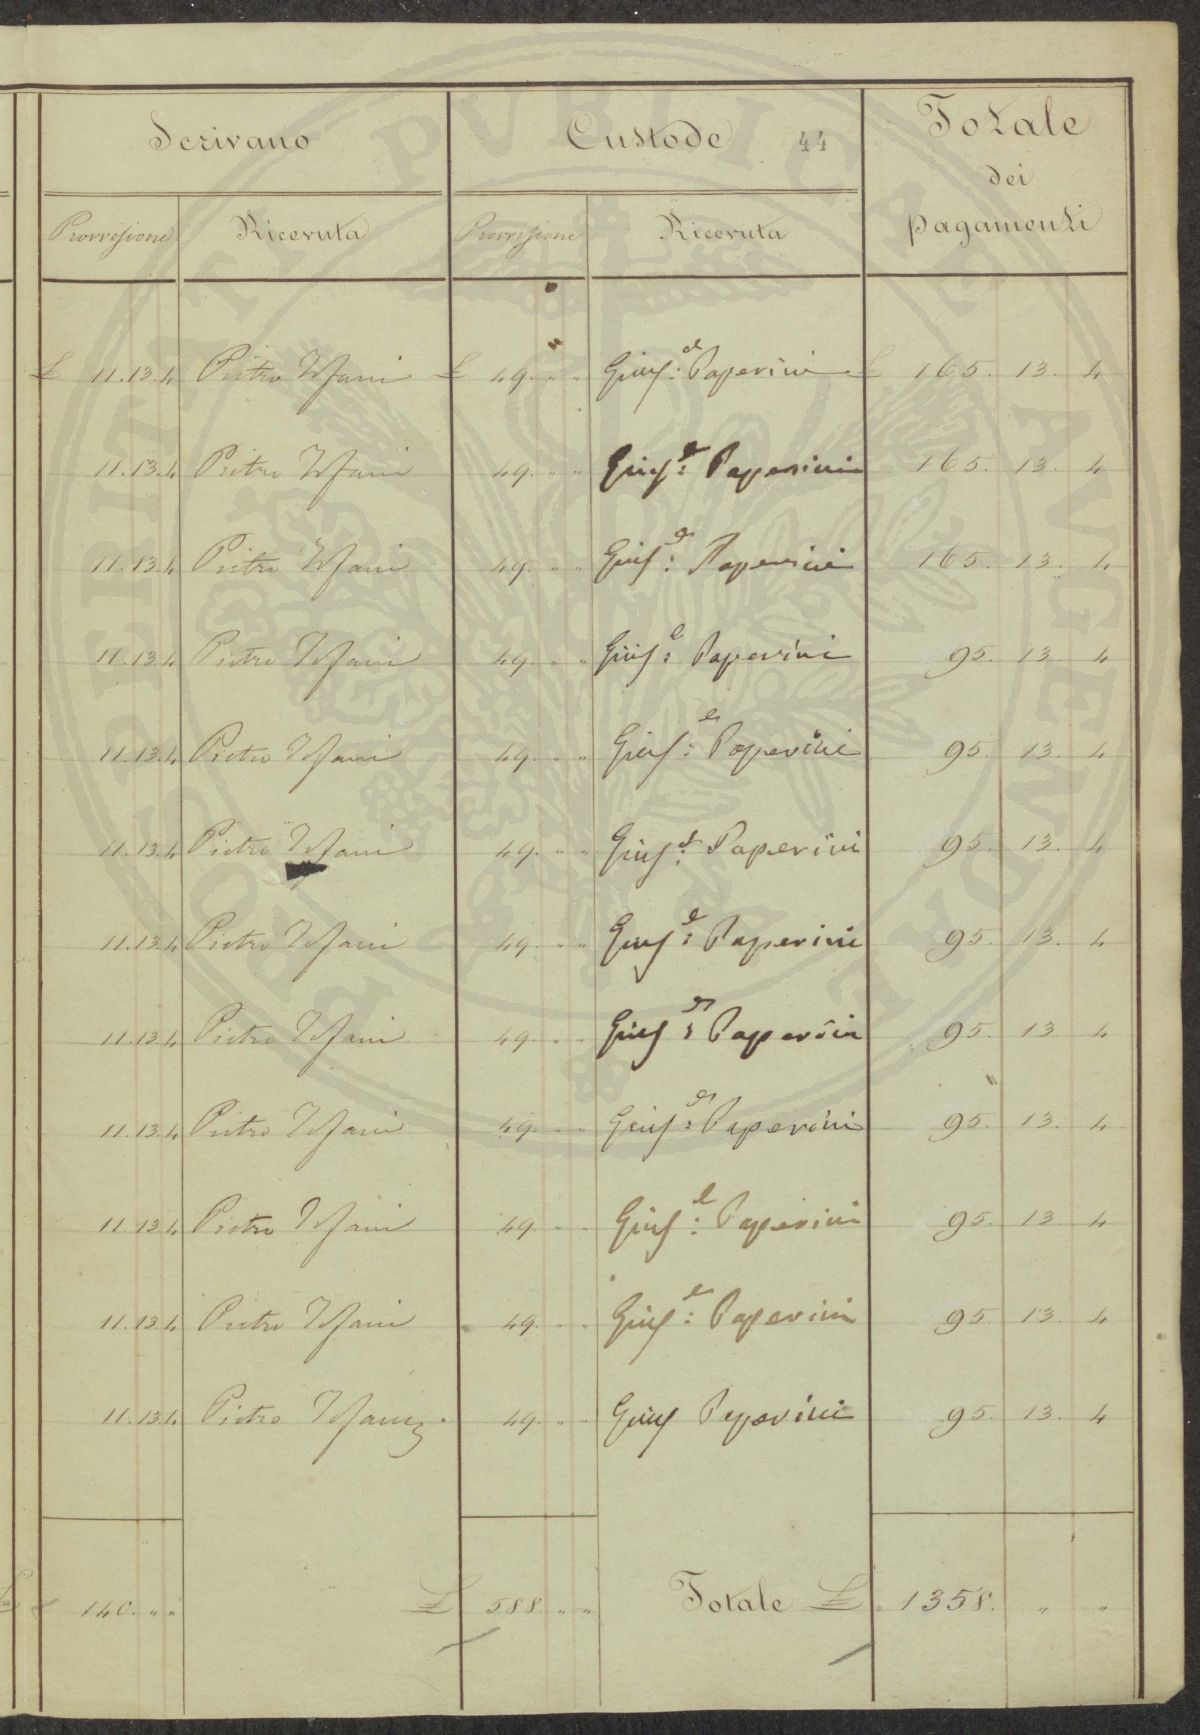 Scrivano Custode 44 Totale
dei
pagamenti
Provvisione Ricevuta Provvisione Ricevuta
£ 11.13.4 Pietro £ 49. " " Gius:e Paperini £ 165. 13. 4
11.13.4 Pietro 49. " " Gius:e Paperini 165. 13. 4
11.13.4 Pietro 49. " " Gius:e Paperini 165. 13. 4
11.13.4 Pietro 49. " " Gius:e Paperini 95. 13. 4
11.13.4 Pietro 49. " " Gius:e Paperini 95. 13. 4
11.13.4 Pietro 49. " " Gius:e Paperini 95. 13. 4
11.13.4 Pietro 49. " " Gius:e Paperini 95. 13. 4
11.13.4 Pietro 49. " " Gius:e Paperini 95. 13. 4
11.13.4 Pietro 49. " " Gius:e Paperini 95. 13. 4
11.13.4 Pietro 49. " " Gius:e Paperini 95. 13. 4
11.13.4 Pietro 49. " " Gius:e Paperini 95. 13. 4
11.13.4 Pietro 49. " " Gius Paperini 95. 13. 4
£ 140. " " £ 588 " " Totale £ 1358. " "